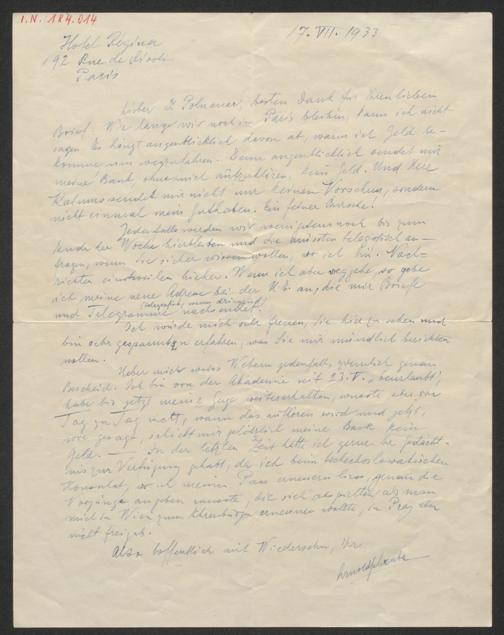 I.N. 184.014
17. VII. 1933
Hotel Regina
192 Rue de Rivoli
Paris
Lieber D Polnauer, besten Dank für Ihren lieben
Brief. Wie lange wir noch in Paris bleiben, kann ich nicht
sagen. Es hängt augenblicklich davon ab, wann ich Geld be-
komme um wegzufahren. Denn augenblicklich sendet mir
meine Bank, ohne mich aufzuklären, kein Geld. Und Herr
Kalmus sendet mir nicht nur keinen Vorschuss, sondern
nicht einmal mein Guthaben. Ein feiner Bursche!
Jedenfalls werden wir wenigstens noch bis zum
Ende der Woche hierbleiben und Sie müssten telegrafisch an-
fragen, wenn Sie sicher wissen wollen, wo ich bin. Nach-
richten einstweilen hieher. Wenn ich aber weggehe, so gebe
ich meine neue Adresse bei der U.E. an, die mir Briefe
und Telegramme nachsendet.
Ich würde mich sehr freuen, Sie hier zu sehen und
bin sehr gespannt zu erfahren, was Sie mir mündlich berichten
wollen.
Ueber mich weiss Webern jedenfalls ziemlich genau
Bescheid. Ich bin von der Akademie seit 23.V. „beurlaubt",
habe bis jetzt meine Gage weitererhalten, weiss aber von
Tag zu Tag nicht, wann das aufhören wird und jetzt,
wie gesagt, schickt mir plötzlich meine Bank kein
Geld. — In der letzten Zeit hätte ich gerne Ihr Gedächt-
nis zur Verfügung gehabt, da ich beim tschechoslovakischen
Konsulat, wo ich meinen Pass erneuern liess, genau die
Vorgänge angeben musste, die sich abspielten, als man
mich in Wien zum Ehrenbürger ernennen wollte, in Prag aber
nicht freigab.
Also hoffentlich auf Wiedersehn, Ihr